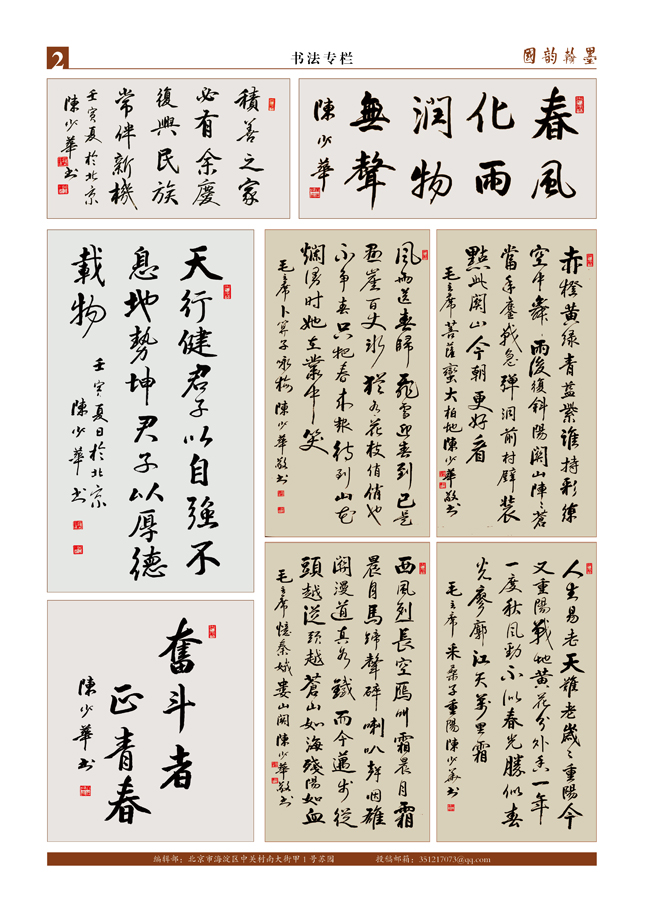 2
书法专栏
國韵翰墨
積善之家
必有余慶
復興民族
常伴新機
壬寅夏於北京
陳少華书
春風
化雨
润物
無聲
陳少華
天行健君子以自強不
息地势坤君子以厚德
載物
壬寅夏日於北京
陳少華书
風雨送春歸飛雪迎春到已是
悬崖百丈冰犹有花枝俏俏也
不争春只把春来報待到山花
爛漫时她在叢中笑
毛主席卜算子咏梅陳少華敬书
赤橙黄绿青蓝紫谁持彩練
空中舞雨後復斜陽関山陣々蒼
當年鏖戰急弹洞前村壁装
點此関山今朝更好看
毛主席菩薩蛮大柏地陳少華敬书
奮斗者
正青春
陳少華书
西風烈長空雁叫霜晨月霜
晨月馬蹄聲碎喇叭聲咽雄
関漫道真如鐵而今邁步從
頭越從頭越蒼山如海殘陽如血
毛主席憶秦娥娄山関陳少華敬书
人生易老天難老歲々重陽今
又重陽戰地黄花分外香一年
一度秋風勁不似春光勝似春
光廖廓江天萬里霜
毛主席采桑子重陽陳少華书
编辑部：北京市海淀区中关村南大街甲1号名园 投稿邮箱：351217073@qq.com